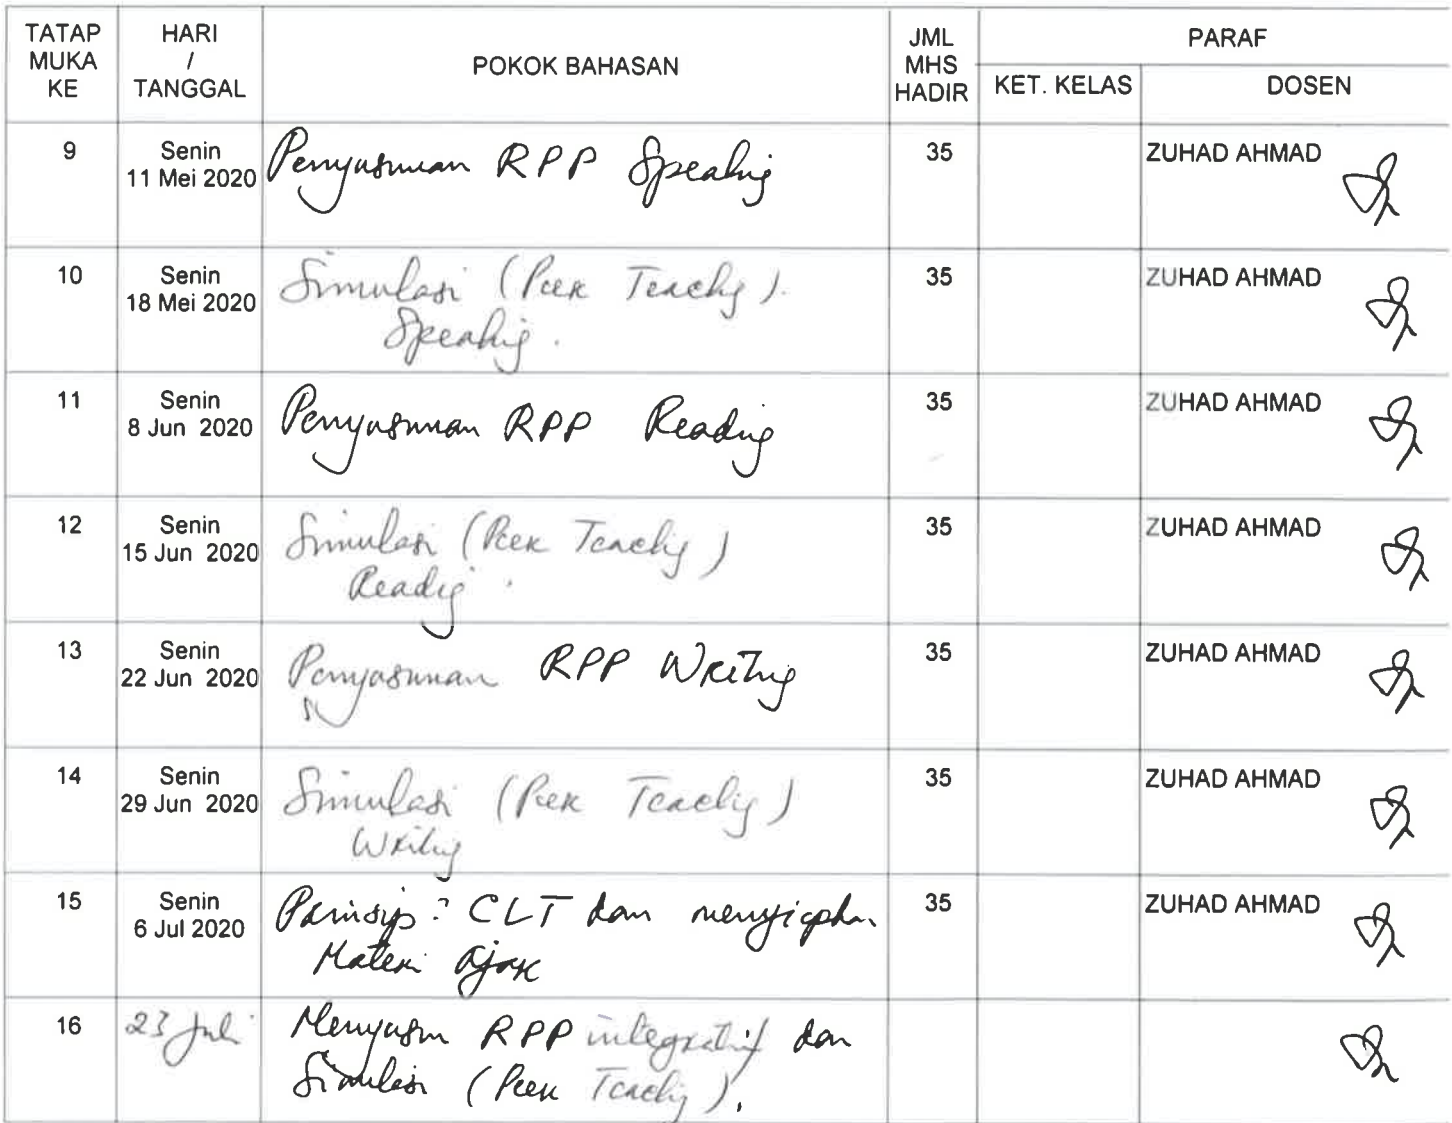 TATAP MUKA KE
HARI / TANGGAL
POKOK BAHASAN
JML MHS HADIR
PARAF
KET. KELAS
DOSEN
9
Senin
11 Mei 2020
Penyusunan RPP Speaking
35
ZUHAD AHMAD
10
Senin
18 Mei 2020
Simulasi (Peer Teaching).
Speaking.
35
ZUHAD AHMAD
11
Senin
8 Jun 2020
Penyusunan RPP Reading
35
ZUHAD AHMAD
12
Senin
15 Jun 2020
Simulasi (Peer Teaching)
Reading.
35
ZUHAD AHMAD
13
Senin
22 Jun 2020
Penyusunan RPP Writing
35
ZUHAD AHMAD
14
Senin
29 Jun 2020
Simulasi (Peer Teaching)
Writing
35
ZUHAD AHMAD
15
Senin
6 Jul 2020
Prinsip² CLT dan menyiapkan
Materi ajar
35
ZUHAD AHMAD
16
23 Juli
Menyusun RPP integratif dan
Simulasi (Peer Teaching).